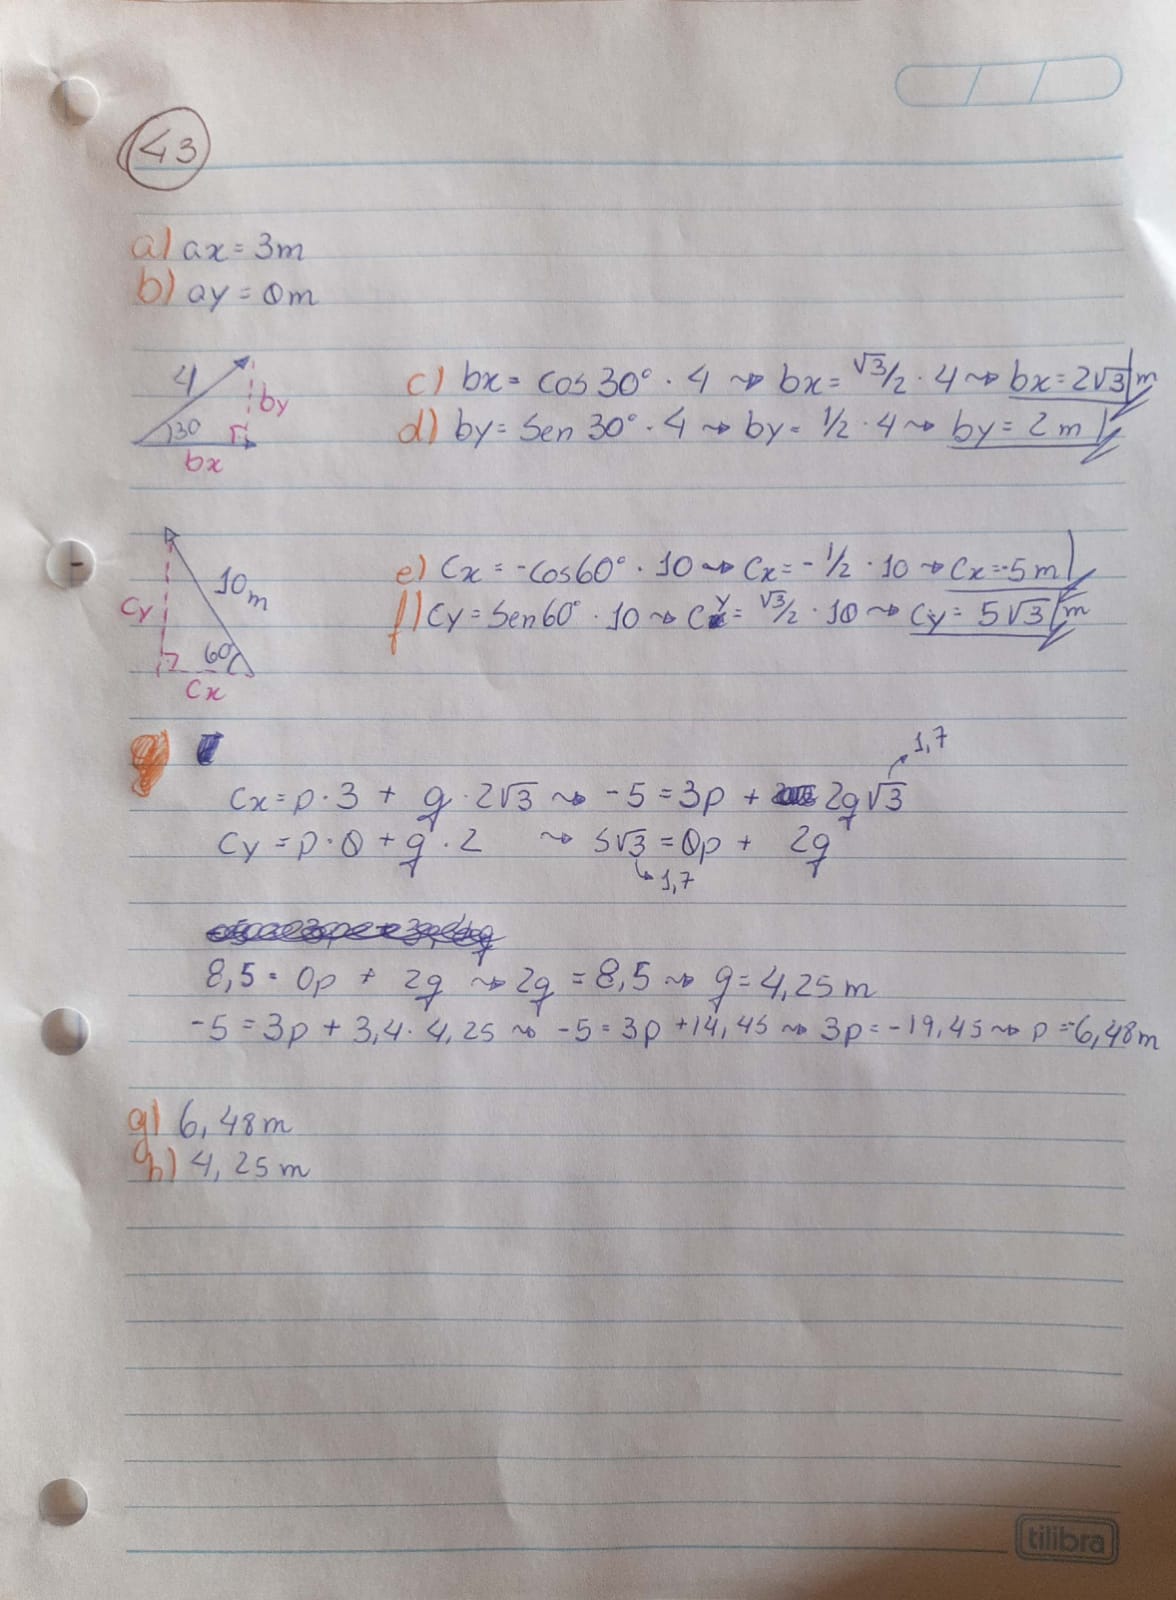 43
a) ax = 3m
b) ay = 0m
4
30
by
bx
c) bx = cos 30° · 4 ⇝ bx = √3/2 · 4 ⇝ bx = 2√3 m
d) by = sen 30° · 4 ⇝ by = 1/2 · 4 ⇝ by = 2 m
10m
Cy
60°
Cx
e) Cx = -cos60° · 10 ⇝ Cx = - 1/2 · 10 ⇝ Cx = -5 m
f) Cy = Sen60° · 10 ⇝ Cy = √3/2 · 10 ⇝ Cy = 5√3 m
1,7
Cx = p · 3 + q · 2√3 ⇝ -5 = 3p + 2q√3
Cy = p · 0 + q · 2 ⇝ 5√3 = 0p + 2q
1,7
8,5 = 0p + 2q ⇝ 2q = 8,5 ⇝ q = 4,25 m
-5 = 3p + 3,4 · 4,25 ⇝ -5 = 3p + 14,45 ⇝ 3p = -19,45 ⇝ p = -6,48m
g) 6,48m
h) 4,25m
tilibra